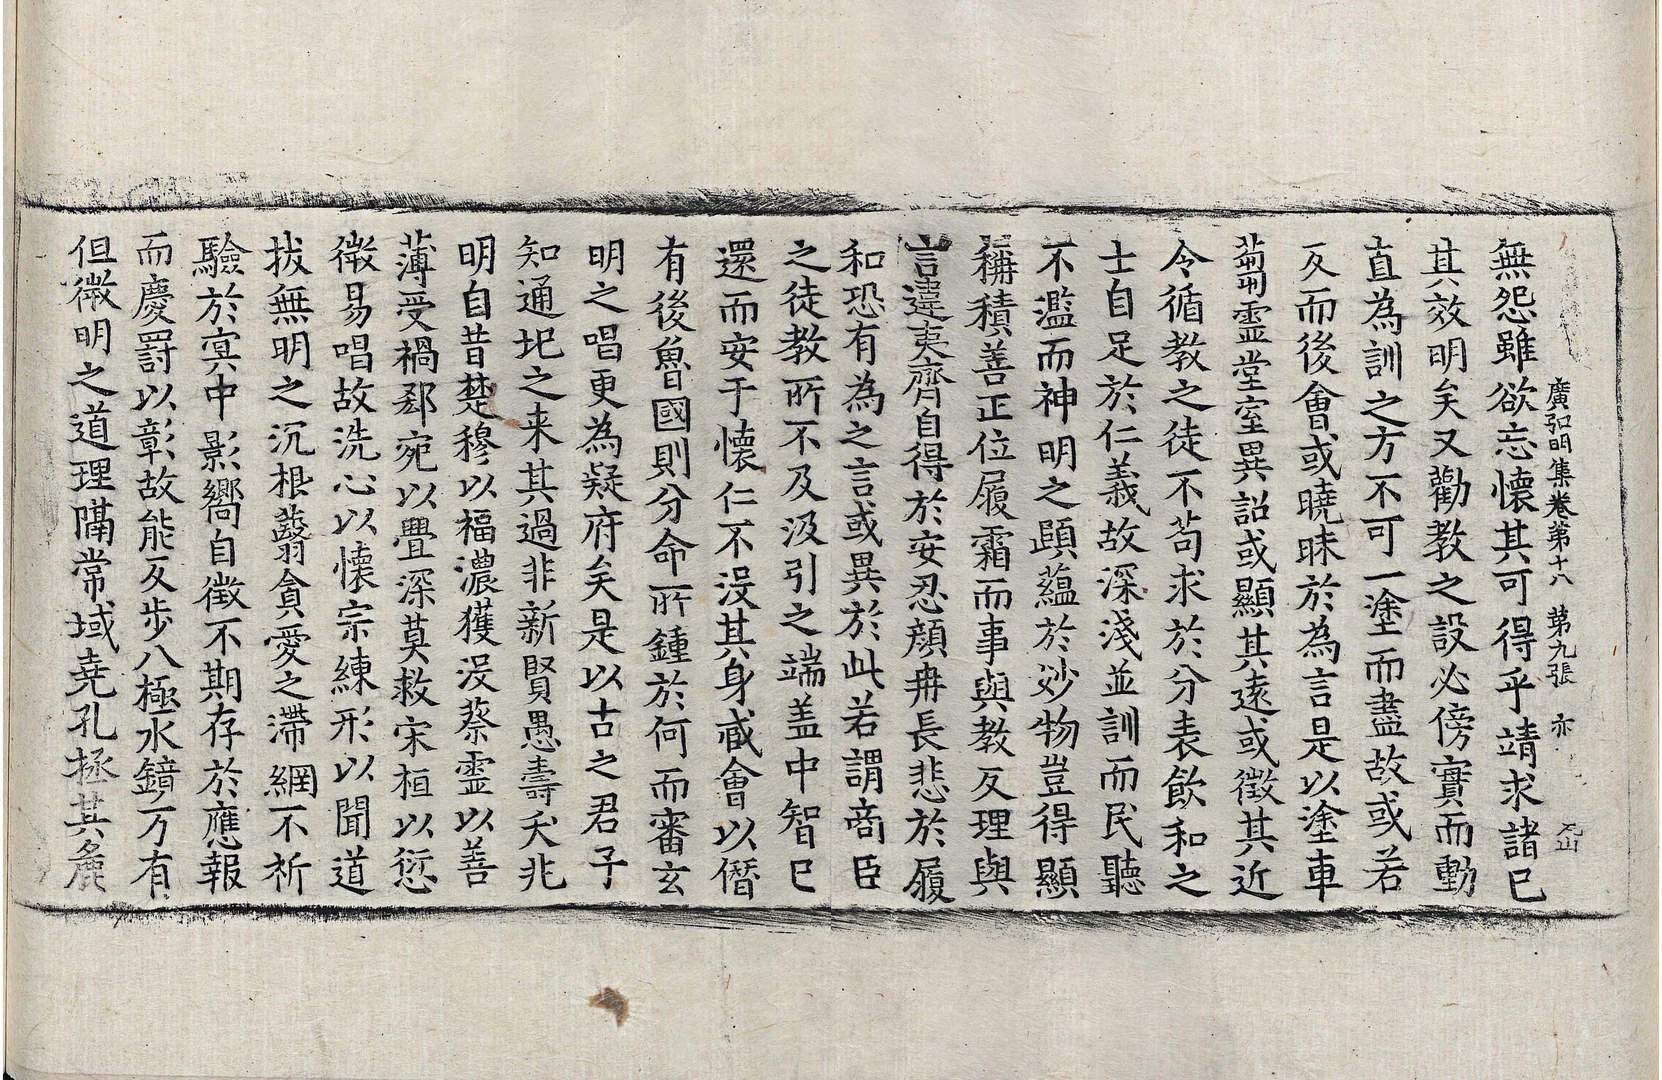 廣弘明集卷第十八　第九張　亦
無怨雖欲忘懷其可得乎靖求諸巳
其效明矣又勸教之設必傍實而動
直為訓之方不可一塗而盡故或若
反而後會或曉昧於為言是以塗車
蒭靈堂室異詔或顯其遠或徵其近
令循教之徒不苟求於分表飲和之
士自足於仁義故深淺並訓而民聽
不濫而神明之賾蘊於妙物豈得顯
稱積善正位履霜而事與教反理與
言違夷齊自得於安忍顏冉長悲於履
和恐有為之言或異於此若謂商臣
之徒教所不及汲引之端盖中智巳
還而安于懷仁不没其身臧會以僭
有後魯國則分命所鍾於何而審玄
明之唱更為疑府矣是以古之君子
知通圮之来其過非新賢愚壽夭兆
明自昔楚穆以福濃獲没蔡靈以善
薄受禍郄宛以舋深莫救宋桓以愆
微易唱故洗心以懷宗練形以聞道
拔無明之沉根蘙貪愛之滯網不祈
驗於冥中影嚮自徵不期存於應報
而慶罰以彰故能反步八極水鏡万有
但微明之道理隔常域堯孔拯其麁